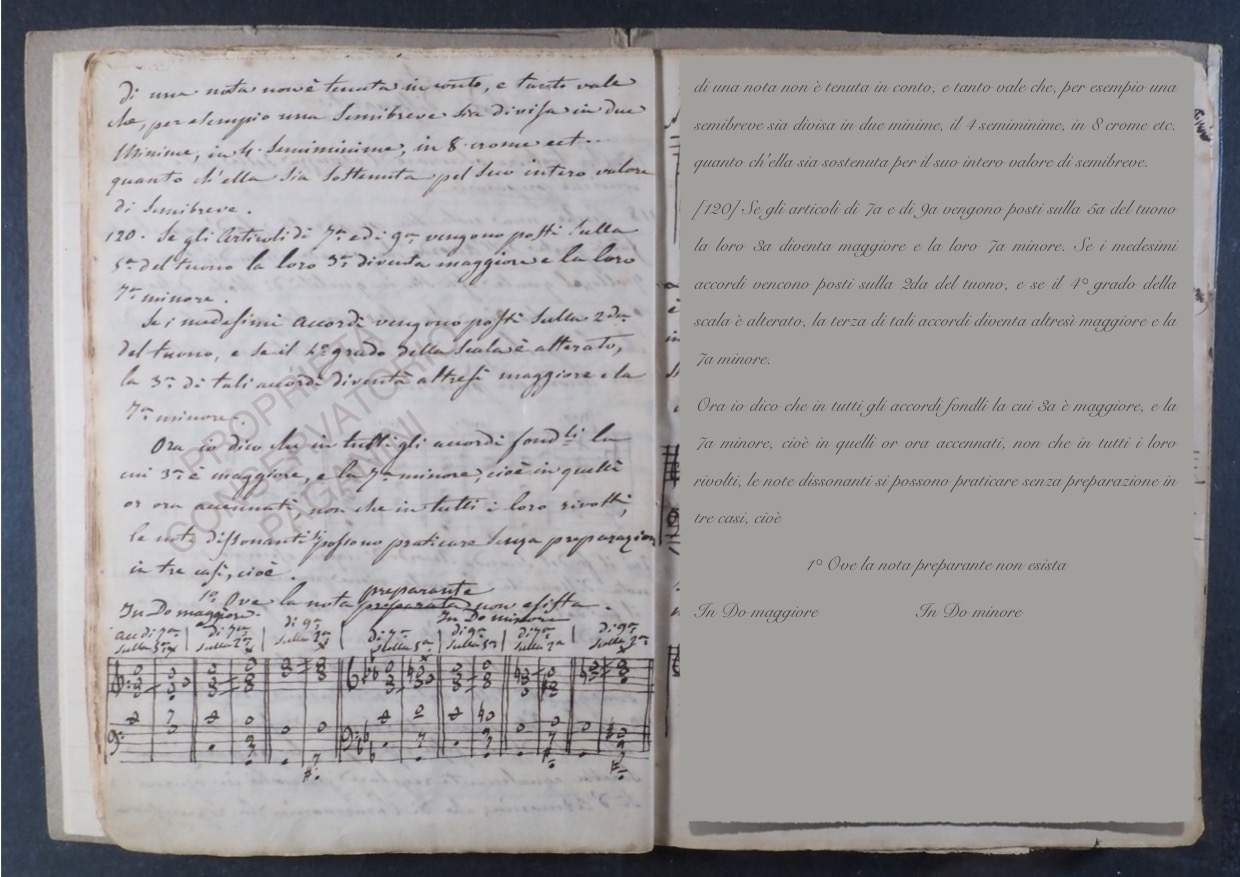 di una nota non è tenuta in conto, e tanto vale
che, per esempio una Semibreve sia divisa in due
Minime, in 4 Semiminime, in 8 crome ect...
quanto ch'ella sia sostenuta pel suo intero valore
di Semibreve.
120. Se gli Articoli di 7ª e di 9ª vengono posti sulla
5ª del tuono la loro 3ª diventa maggiore e la loro
7ª minore.
Se i medesimi accordi vengono posti sulla 2da
del tuono, e se il 4º grado della Scala è alterato,
la 3ª di tali accordi diventa altresì maggiore e la
7ª minore.
Ora io dico che in tutti gli accordi fondli la
cui 3ª è maggiore, e la 7ª minore, cioè in quelli
or ora accennati, non che in tutti i loro rivolti,
le note dissonanti si possono praticare senza preparazion
in tre casi, cioè.
1º Ove la nota preparata non esista.
preparante
In Do maggiore. In Do minore
acc di 7ª sulla 5ª | di 7ª sulla 2ª | di 9ª sulla 2ª | di 7ª sulla 5ª | di 9ª sulla 5ª | di 7ª sulla 2ª | di 9ª sulla 2ª
PROPRIETÀ
CONSERVATORIO
PAGANINI
di una nota non è tenuta in conto, e tanto vale che, per esempio una
semibreve sia divisa in due minime, il 4 semiminime, in 8 crome etc.
quanto ch'ella sia sostenuta per il suo intero valore di semibreve.
[120] Se gli articoli di 7a e di 9a vengono posti sulla 5a del tuono
la loro 3a diventa maggiore e la loro 7a minore. Se i medesimi
accordi vencono posti sulla 2da del tuono, e se il 4° grado della
scala è alterato, la terza di tali accordi diventa altresì maggiore e la
7a minore.
Ora io dico che in tutti gli accordi fondli la cui 3a è maggiore, e la
7a minore, cioè in quelli or ora accennati, non che in tutti i loro
rivolti, le note dissonanti si possono praticare senza preparazione in
tre casi, cioè
1° Ove la nota preparante non esista
In Do maggiore In Do minore